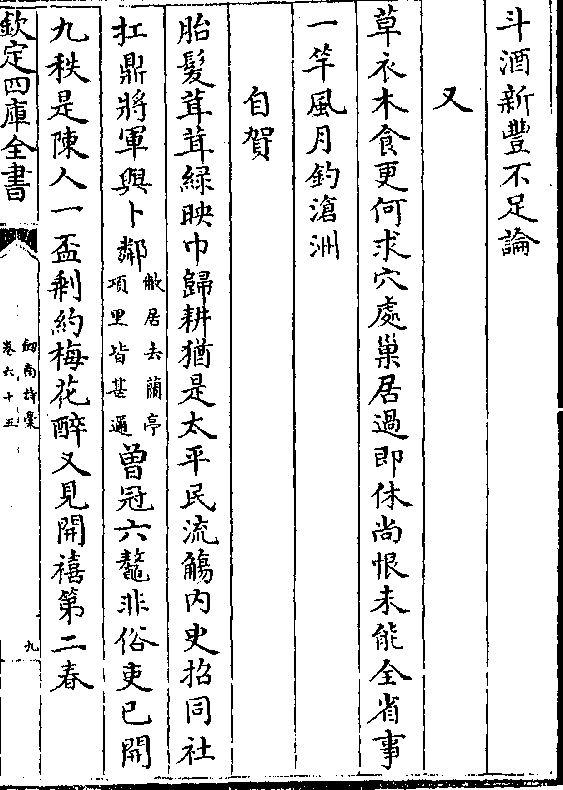 斗酒新豐不足論
又
草衣木食更何求穴處巢居過即休尚恨未能全省事
一竿風月釣滄洲
自賀
胎髮茸茸綠映巾歸耕猶是太平民流觴內史招同社
扛鼎將軍與卜鄰敝居去蘭亭
項里皆甚邇曽冠六鼇非俗吏已開
九秩是陳人一盃剰約梅花醉又見開禧第二春
欽定四庫全書
劒南詩稾
卷六十五
九